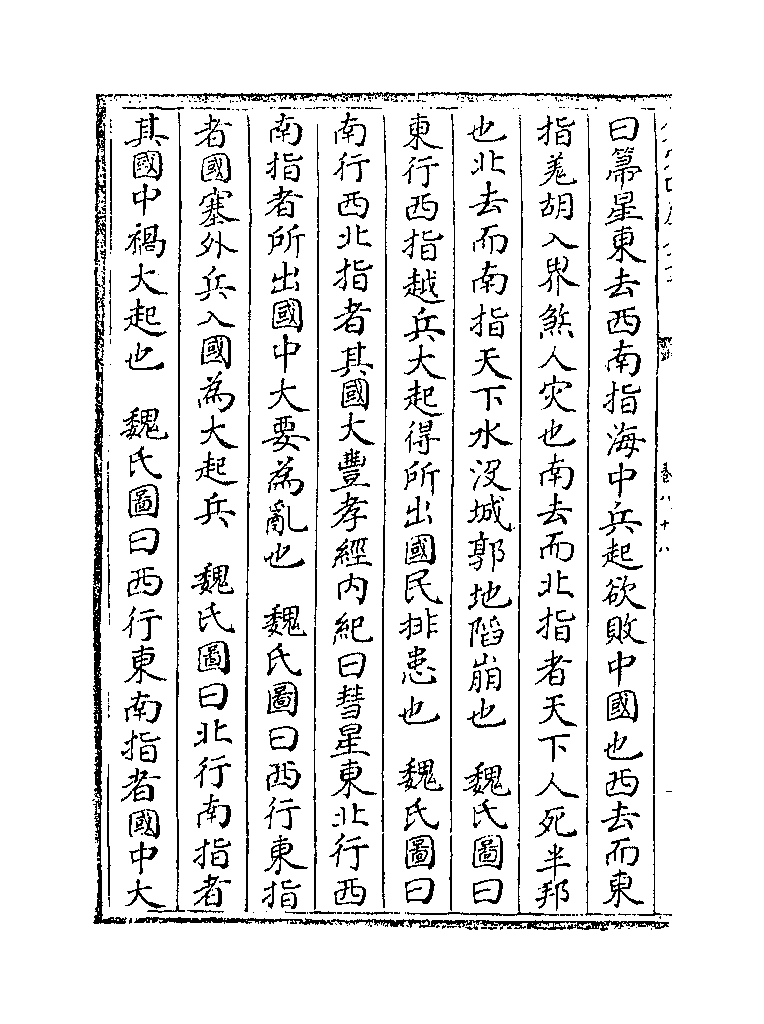 曰篲星東去西南指海中兵起欲敗中國也西去而東
指羗胡入界煞人灾也南去而北指者天下人死半邦
也北去而南指天下水没城郭地䧟崩也　魏氏圖曰
東行西指越兵大起得所出國民排患也　魏氏圖曰
南行西北指者其國大豐孝經内紀曰彗星東北行西
南指者所出國中大要為亂也　魏氏圖曰西行東指
者國塞外兵入國為大起兵　魏氏圖曰北行南指者
其國中禍大起也　魏氏圖曰西行東南指者國中大
卷八十八